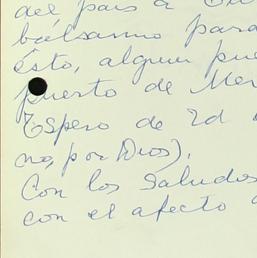 del país a
bálsamo para
ésto, algun
puerto de Mer
Espero de Ud
no, por Dios).
Con los saludos
con el afecto